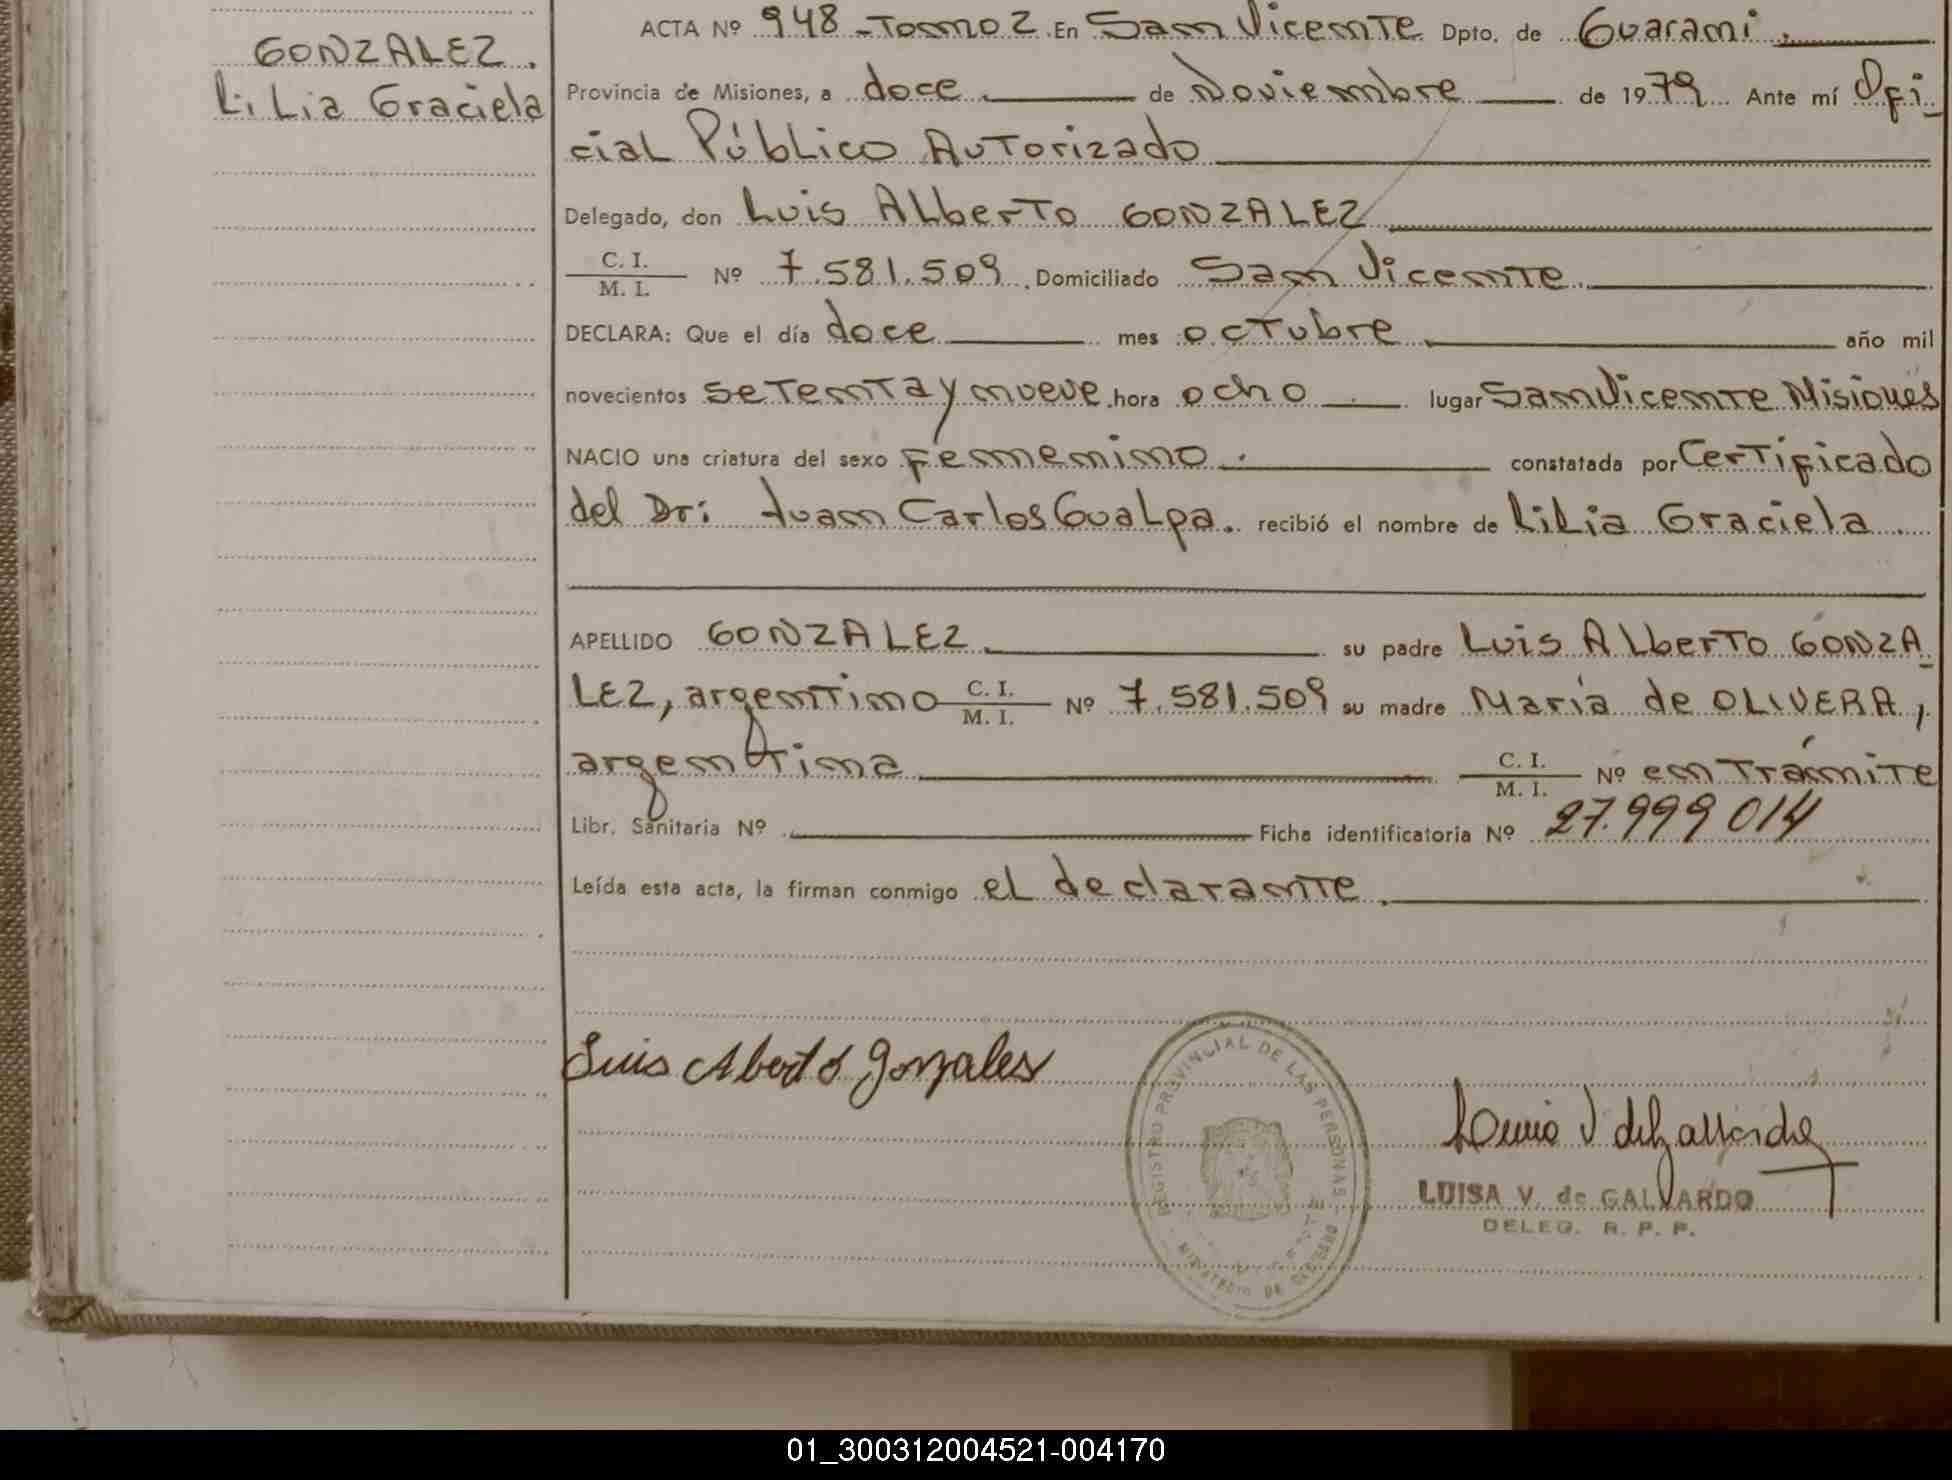 GONZALEZ.
LiLia Graciela
ACTA Nº 948-Tomo 2. En San Vicente Dpto. de Guarani.
Provincia de Misiones, a doce de Noviembre de 1979. Ante mí Ofi-
cial Público Autorizado
Delegado, don Luis Alberto GONZALEZ
C. I.
M. I. Nº 7.581.509. Domiciliado San Vicente.
DECLARA: Que el día doce mes octubre año mil
novecientos setenta y nueve hora ocho lugar San Vicente Misiones
NACIO una criatura del sexo femenino. constatada por Certificado
del Dr: Juan Carlos Gualpa. recibió el nombre de LiLia Graciela
APELLIDO GONZALEZ su padre Luis Alberto GONZA-
LEZ, argentino C. I. M. I. Nº 7.581.509 su madre María de OLIVERA,
argentina C. I. M. I. Nº en Trámite
Libr. Sanitaria Nº Ficha identificatoria Nº 27.999.014
Leída esta acta, la firman conmigo el declarante.
Luis Abert o Gonzales
REGISTRO PROVINCIAL DE LAS PERSONAS
MINISTERIO DE GOBIERNO
Luisa V de Gallardo
LUISA V. de GALLARDO
DELEG. R. P. P.
01_300312004521-004170